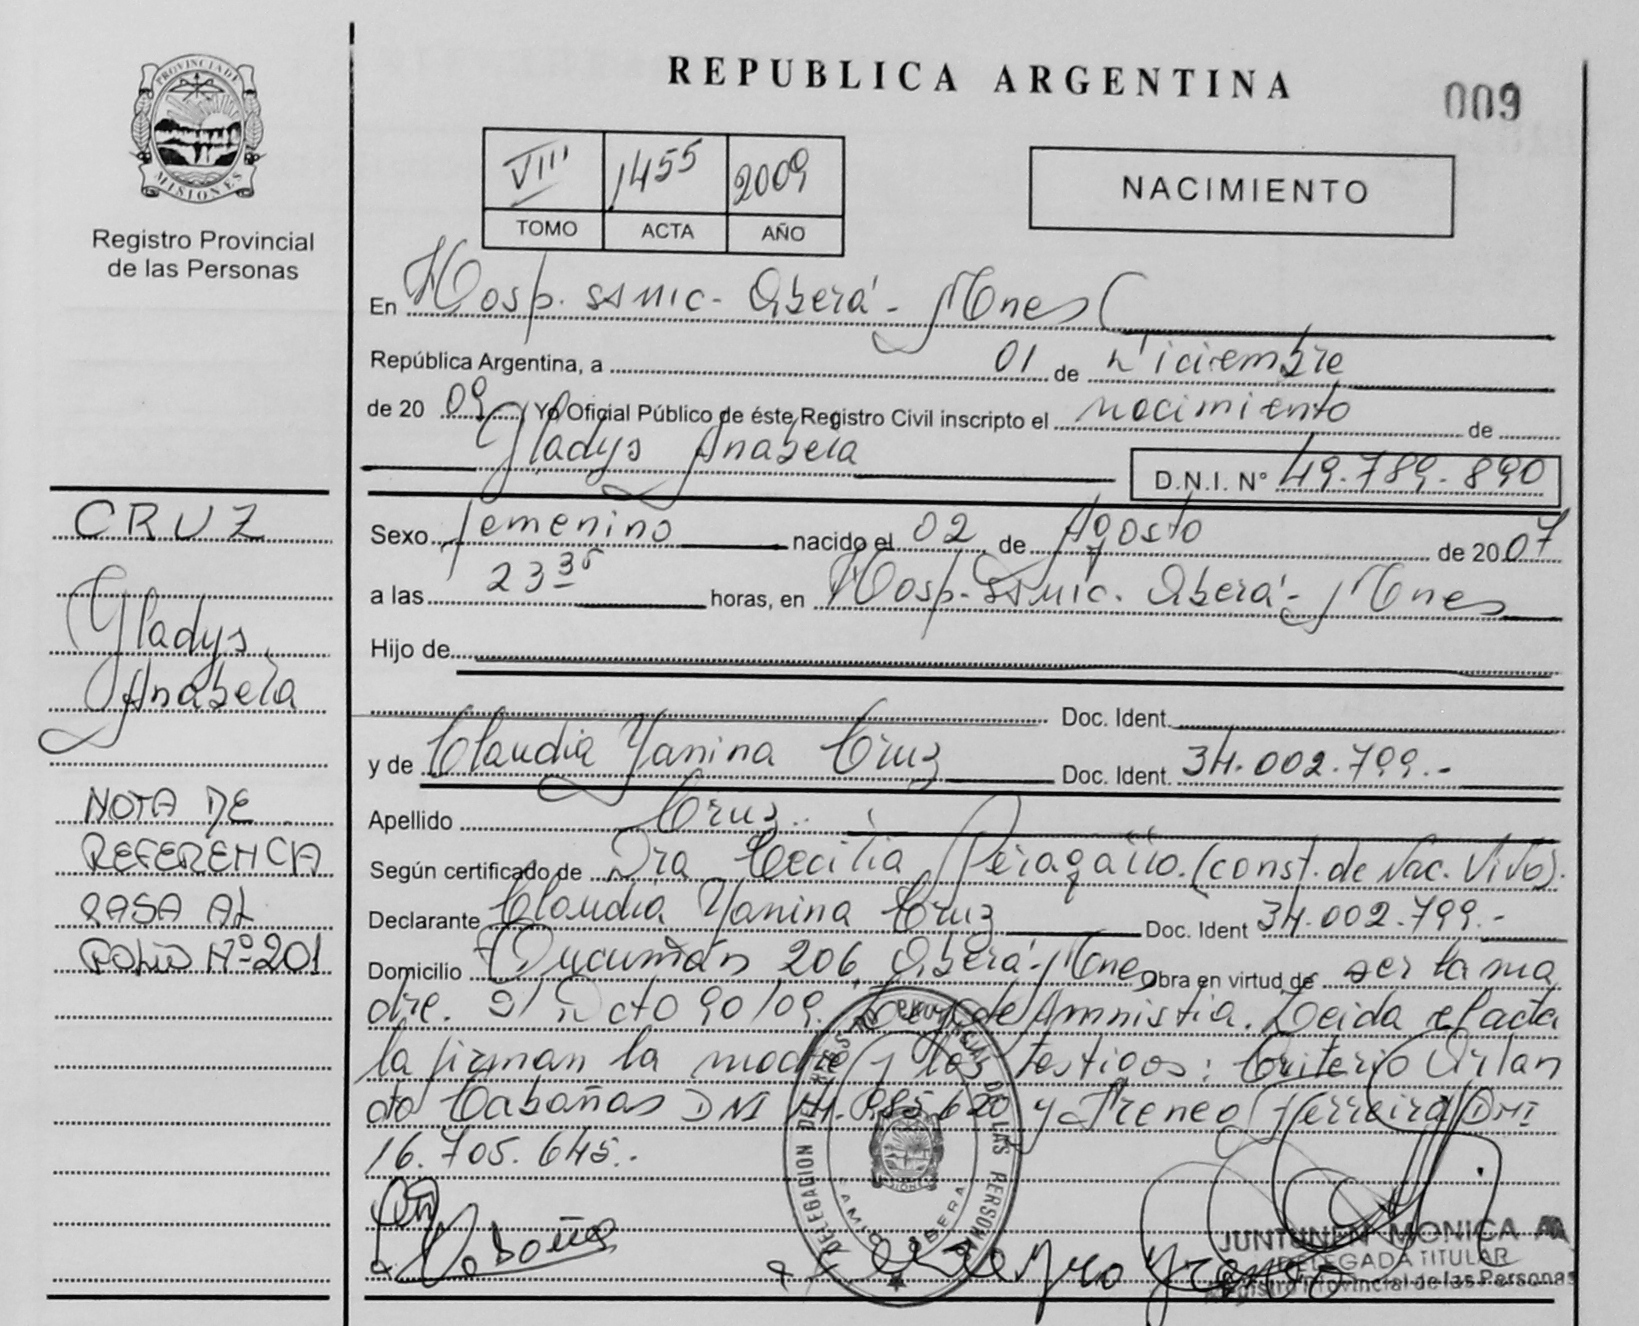 PROVINCIA DE
MISIONES
Registro Provincial
de las Personas
REPUBLICA ARGENTINA
009
VIII 1455 2009
TOMO ACTA AÑO
NACIMIENTO
En Hosp. SSMIC - Oberá - Mnes
República Argentina, a 01 de Diciembre
de 20 09 Yo Oficial Público de éste Registro Civil inscripto el nacimiento de
Gladys Anabela D.N.I. N° 49.789.890
Sexo femenino nacido el 02 de Agosto de 20 07
a las 23 35 horas, en Hosp. SSMIC. Oberá - Mnes
Hijo de
Doc. Ident.
y de Claudia Yanina Cruz Doc. Ident. 34.002.799.-
Apellido Cruz
Según certificado de Dra Cecilia (const. de Nac. Vivo).
Declarante Claudia Yanina Cruz Doc. Ident 34.002.799.-
Domicilio Tucumán 206, Oberá - Mnes Obra en virtud de ser la ma
dre. S/ Dcto 90/09. Ley de Amnistia. Leida el acta
la firman la madre y los testigos: Criterio Orlan
do Cabañas DNI y Ireneo Ferreira DNI
16.705.645.-
CRUZ
Gladys
Anabela
NOTA DE
REFERENCIA
PASA AL
FOLIO Nº 201
DELEGACION DEL REGISTRO PROVINCIAL DE LAS PERSONAS
OBERA
Cabañas
JUNTUNEN MONICA
DELEGADA TITULAR
Registro Provincial de las Personas